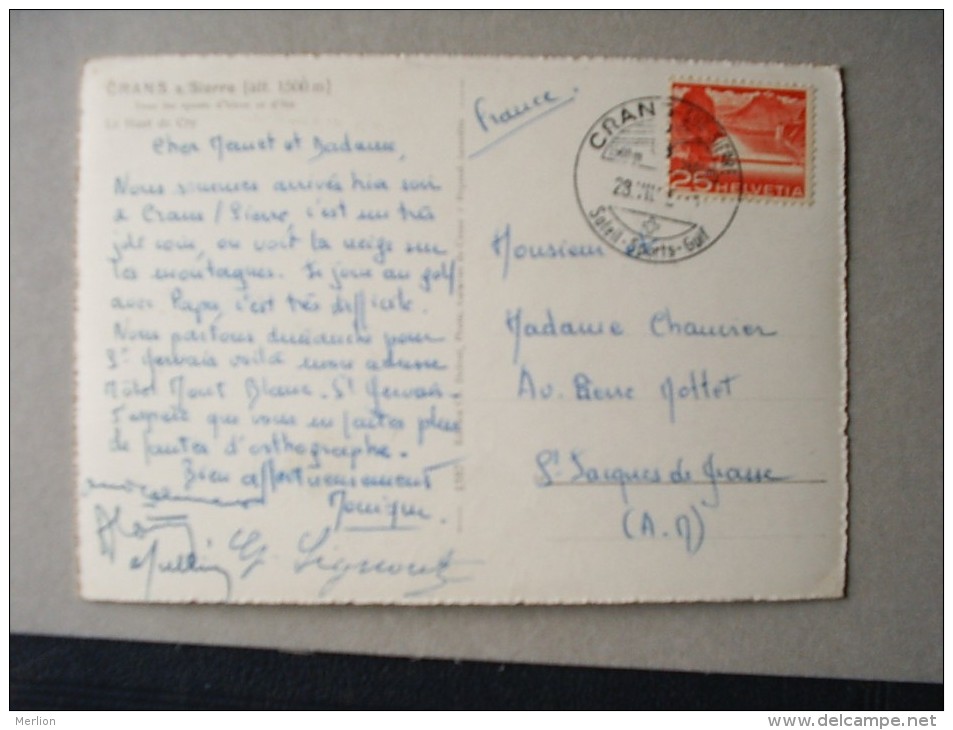 CRANS s/Sierre (alt. 1500 m)
Tous les sports d'hiver et d'été
Le Haut de Cry
Cher et Madame,
Nous sommes arrivés hier soir
à Crans/Sierre, c'est un très
joli coin, on voit la neige sur
les montagnes. Je joue au golf
avec Papa, c'est très difficile.
Nous partons dimanche pour
St Gervais voilà mon adresse
Hôtel Mont Blanc - St Gervais -
J'espère que vous ne faites plus
de fautes d'orthographe -
Bien affectueusement
Monique
France.
CRANS SIERRE
Soleil - Sports - Golf
25 HELVETIA
Monsieur
Madame
Av. Pierre
St Jacques de Grasse
(A. M)
Merlion
http://www.delcampe.net